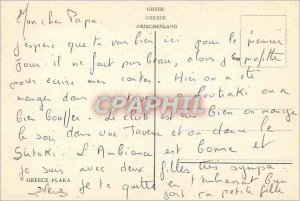 GRECE
GREECE
GRIECHENLAND
Mon cher Papa.
J'espère que tu vas bien ici pour le premier
jour il ne fait pas beau, alors j'en profite
pour écrire mes cartes. Hier on a été
manger dans à Loutraki on a
bien bouffé. Le club est bien on mange
le soir dans une Taverne et on danse le
Sirtaki. L'Ambiance est bonne et
je suis avec deux filles très sympa
je te quitte en t'embrassant bien
fort ta petite fille
GREECE: PLAKA
CPArama.com